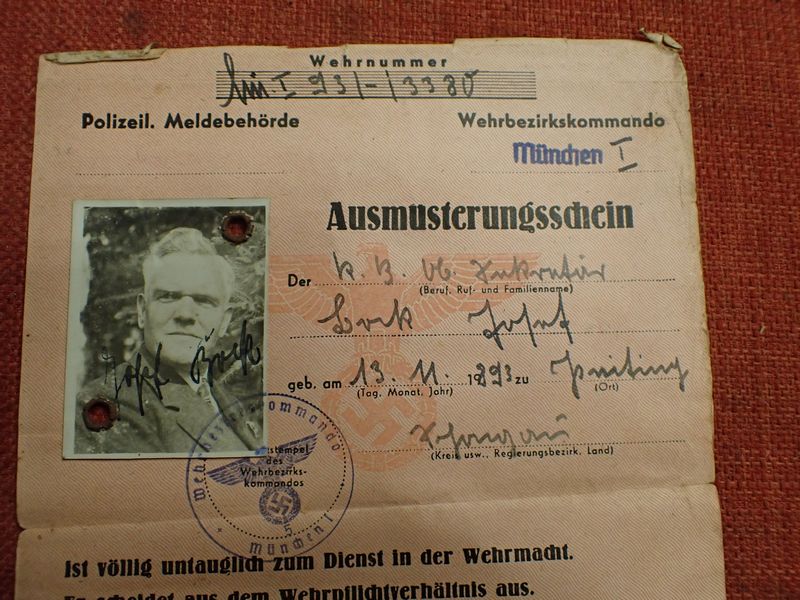 Wehrnummer
Mü. I 93/-/3380
Polizeil. Meldebehörde
Wehrbezirkskommando
München I
Ausmusterungsschein
Der k. B. Ob. Sekretär
(Beruf, Ruf- und Familienname)
Bock Josef
geb. am 13. 11. 1893 zu
(Tag, Monat, Jahr)
(Ort)
Schongau
(Kreis usw., Regierungsbezirk, Land)
Josef Bock
Wehrbezirkskommando
stempel
des
Wehrbezirks-
kommandos
5
München I
ist völlig untauglich zum Dienst in der Wehrmacht.
Er scheidet aus dem Wehrpflichtverhältnis aus.